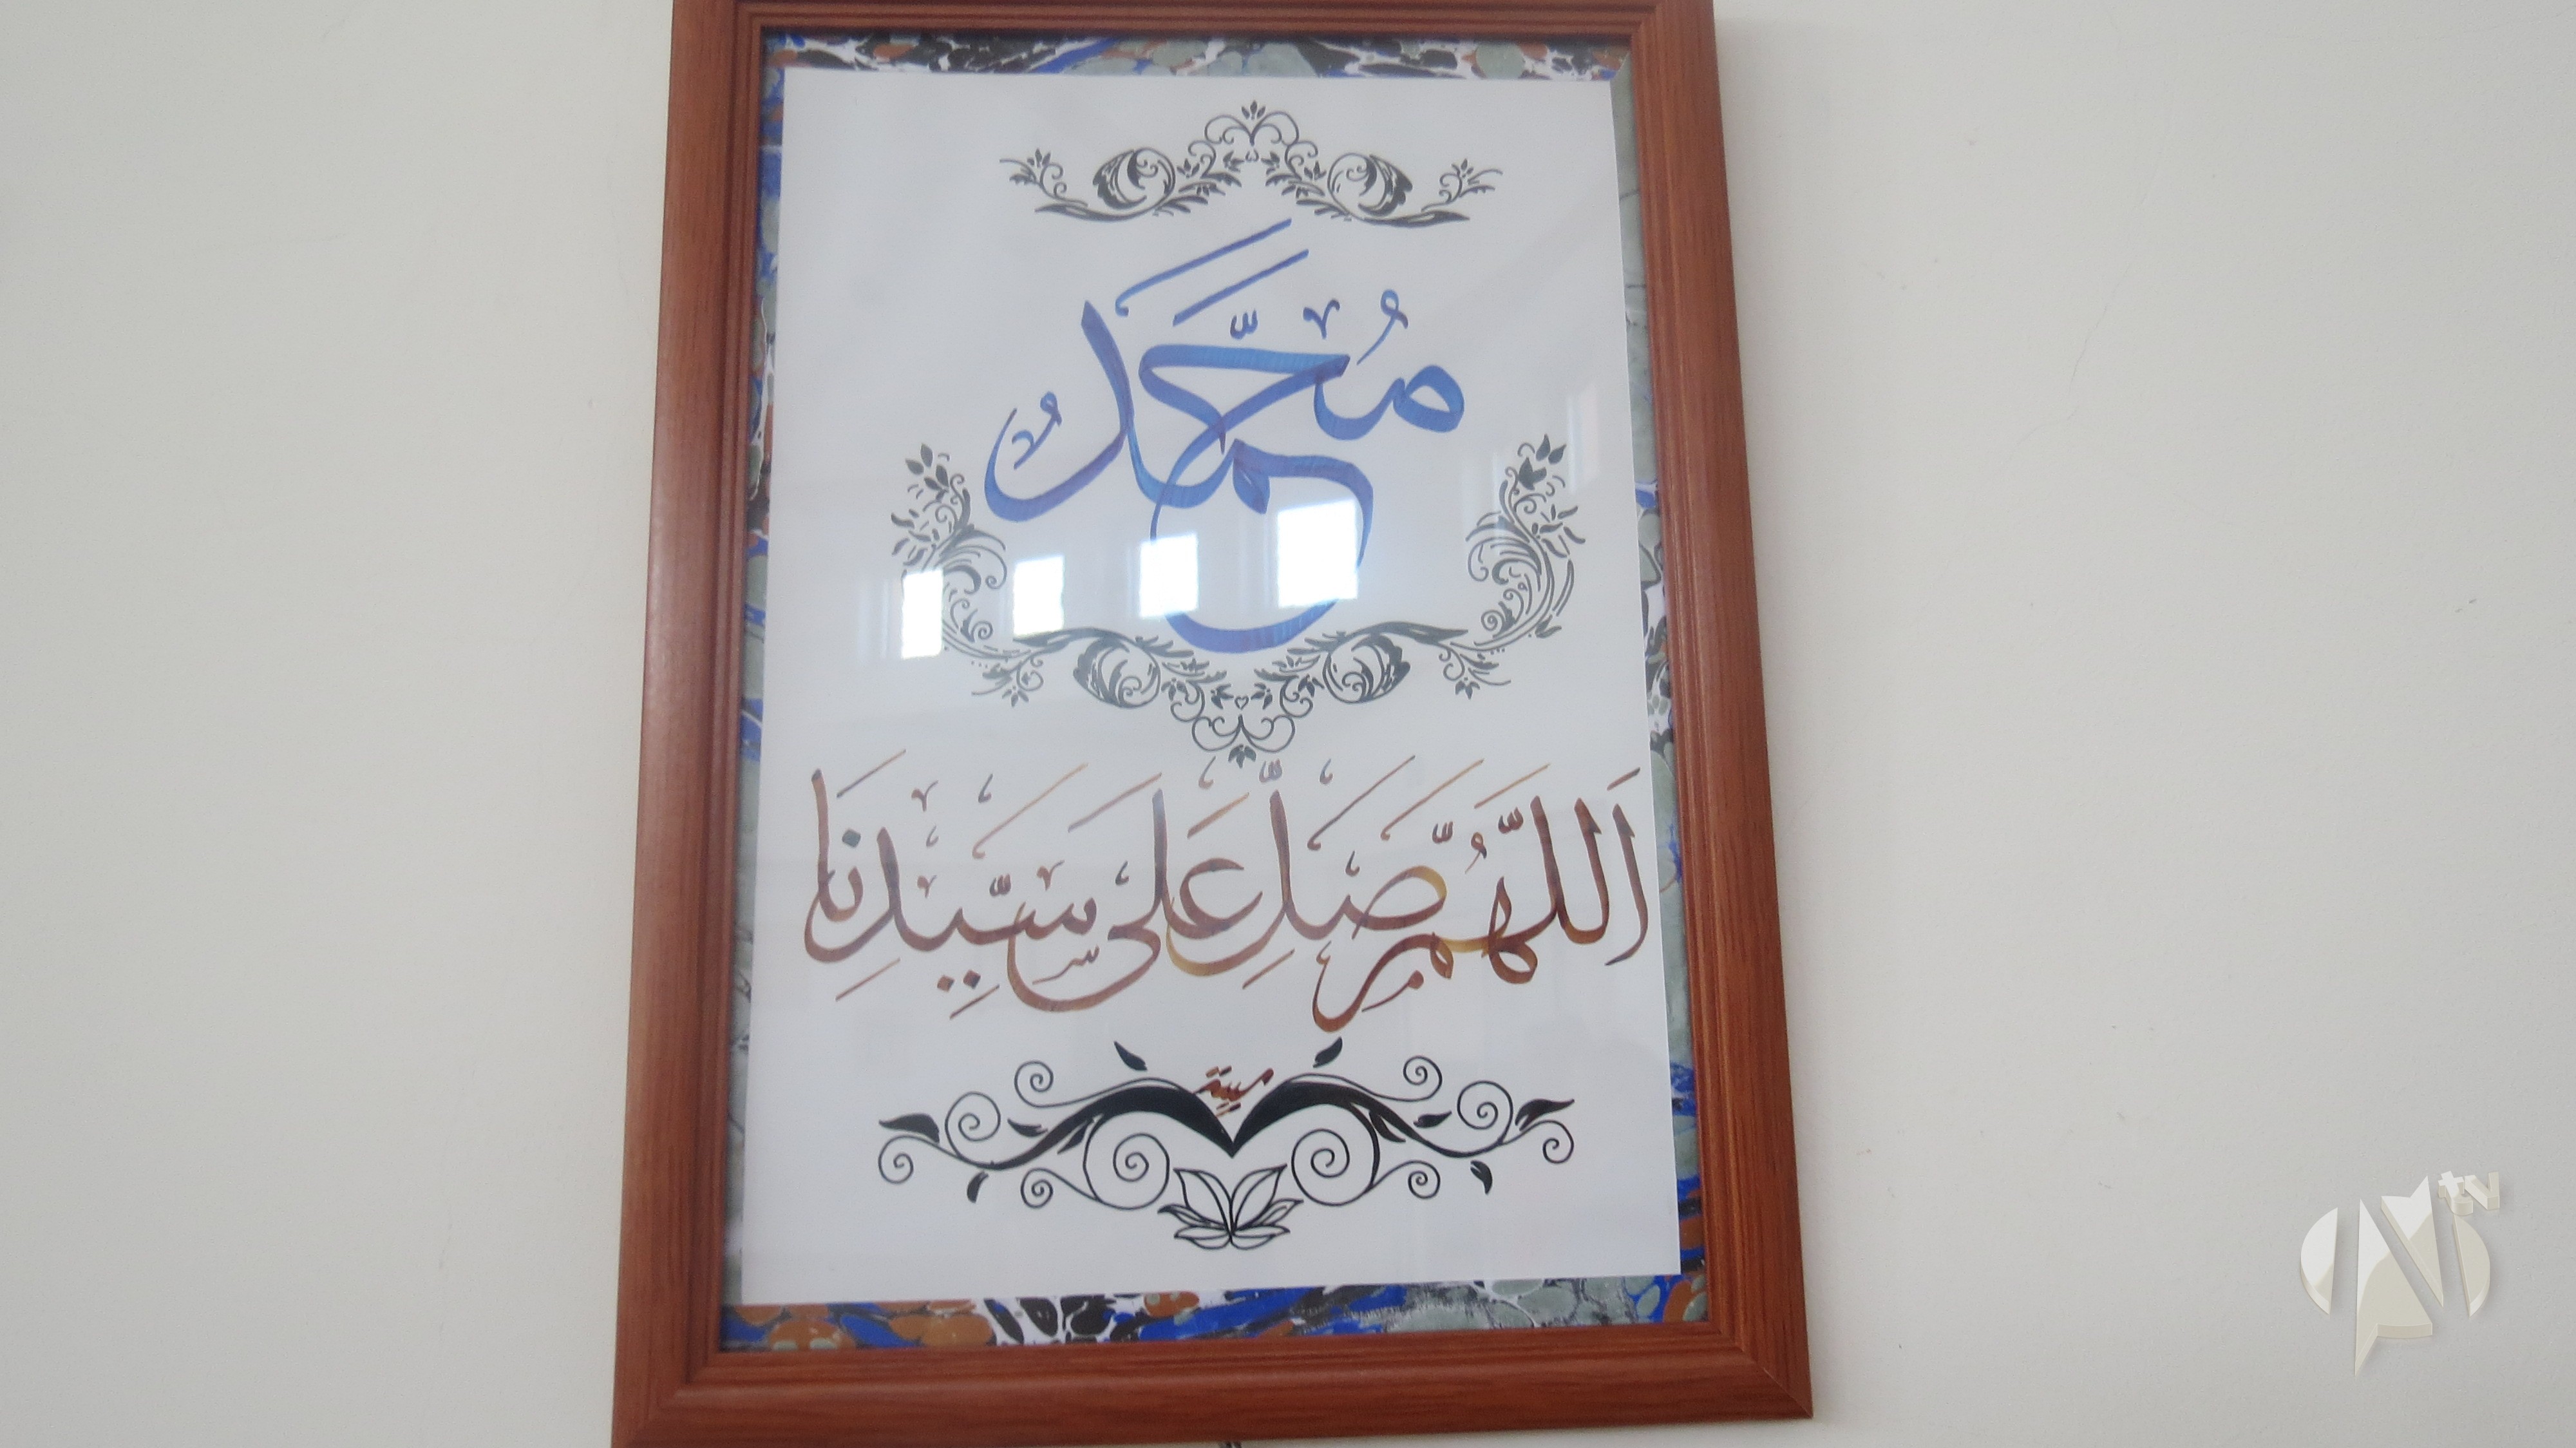 مُحَمَّدٌ
اَللَّهُمَّ صَلِّ عَلَى سَيِّدِنَا
tv